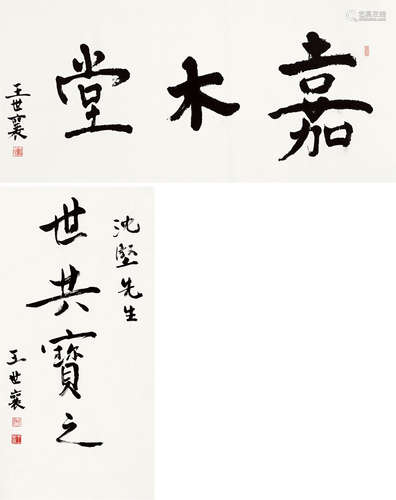 嘉木堂
王世襄
沈坚先生
世共寶之
王世襄